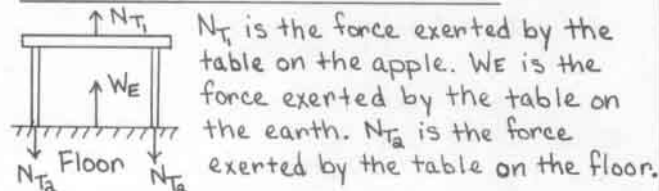 N_T₁
W_E
Floor
N_T₂
N_T₂
N_T₁ is the force exerted by the
table on the apple. W_E is the
force exerted by the table on
the earth. N_T₂ is the force
exerted by the table on the floor.